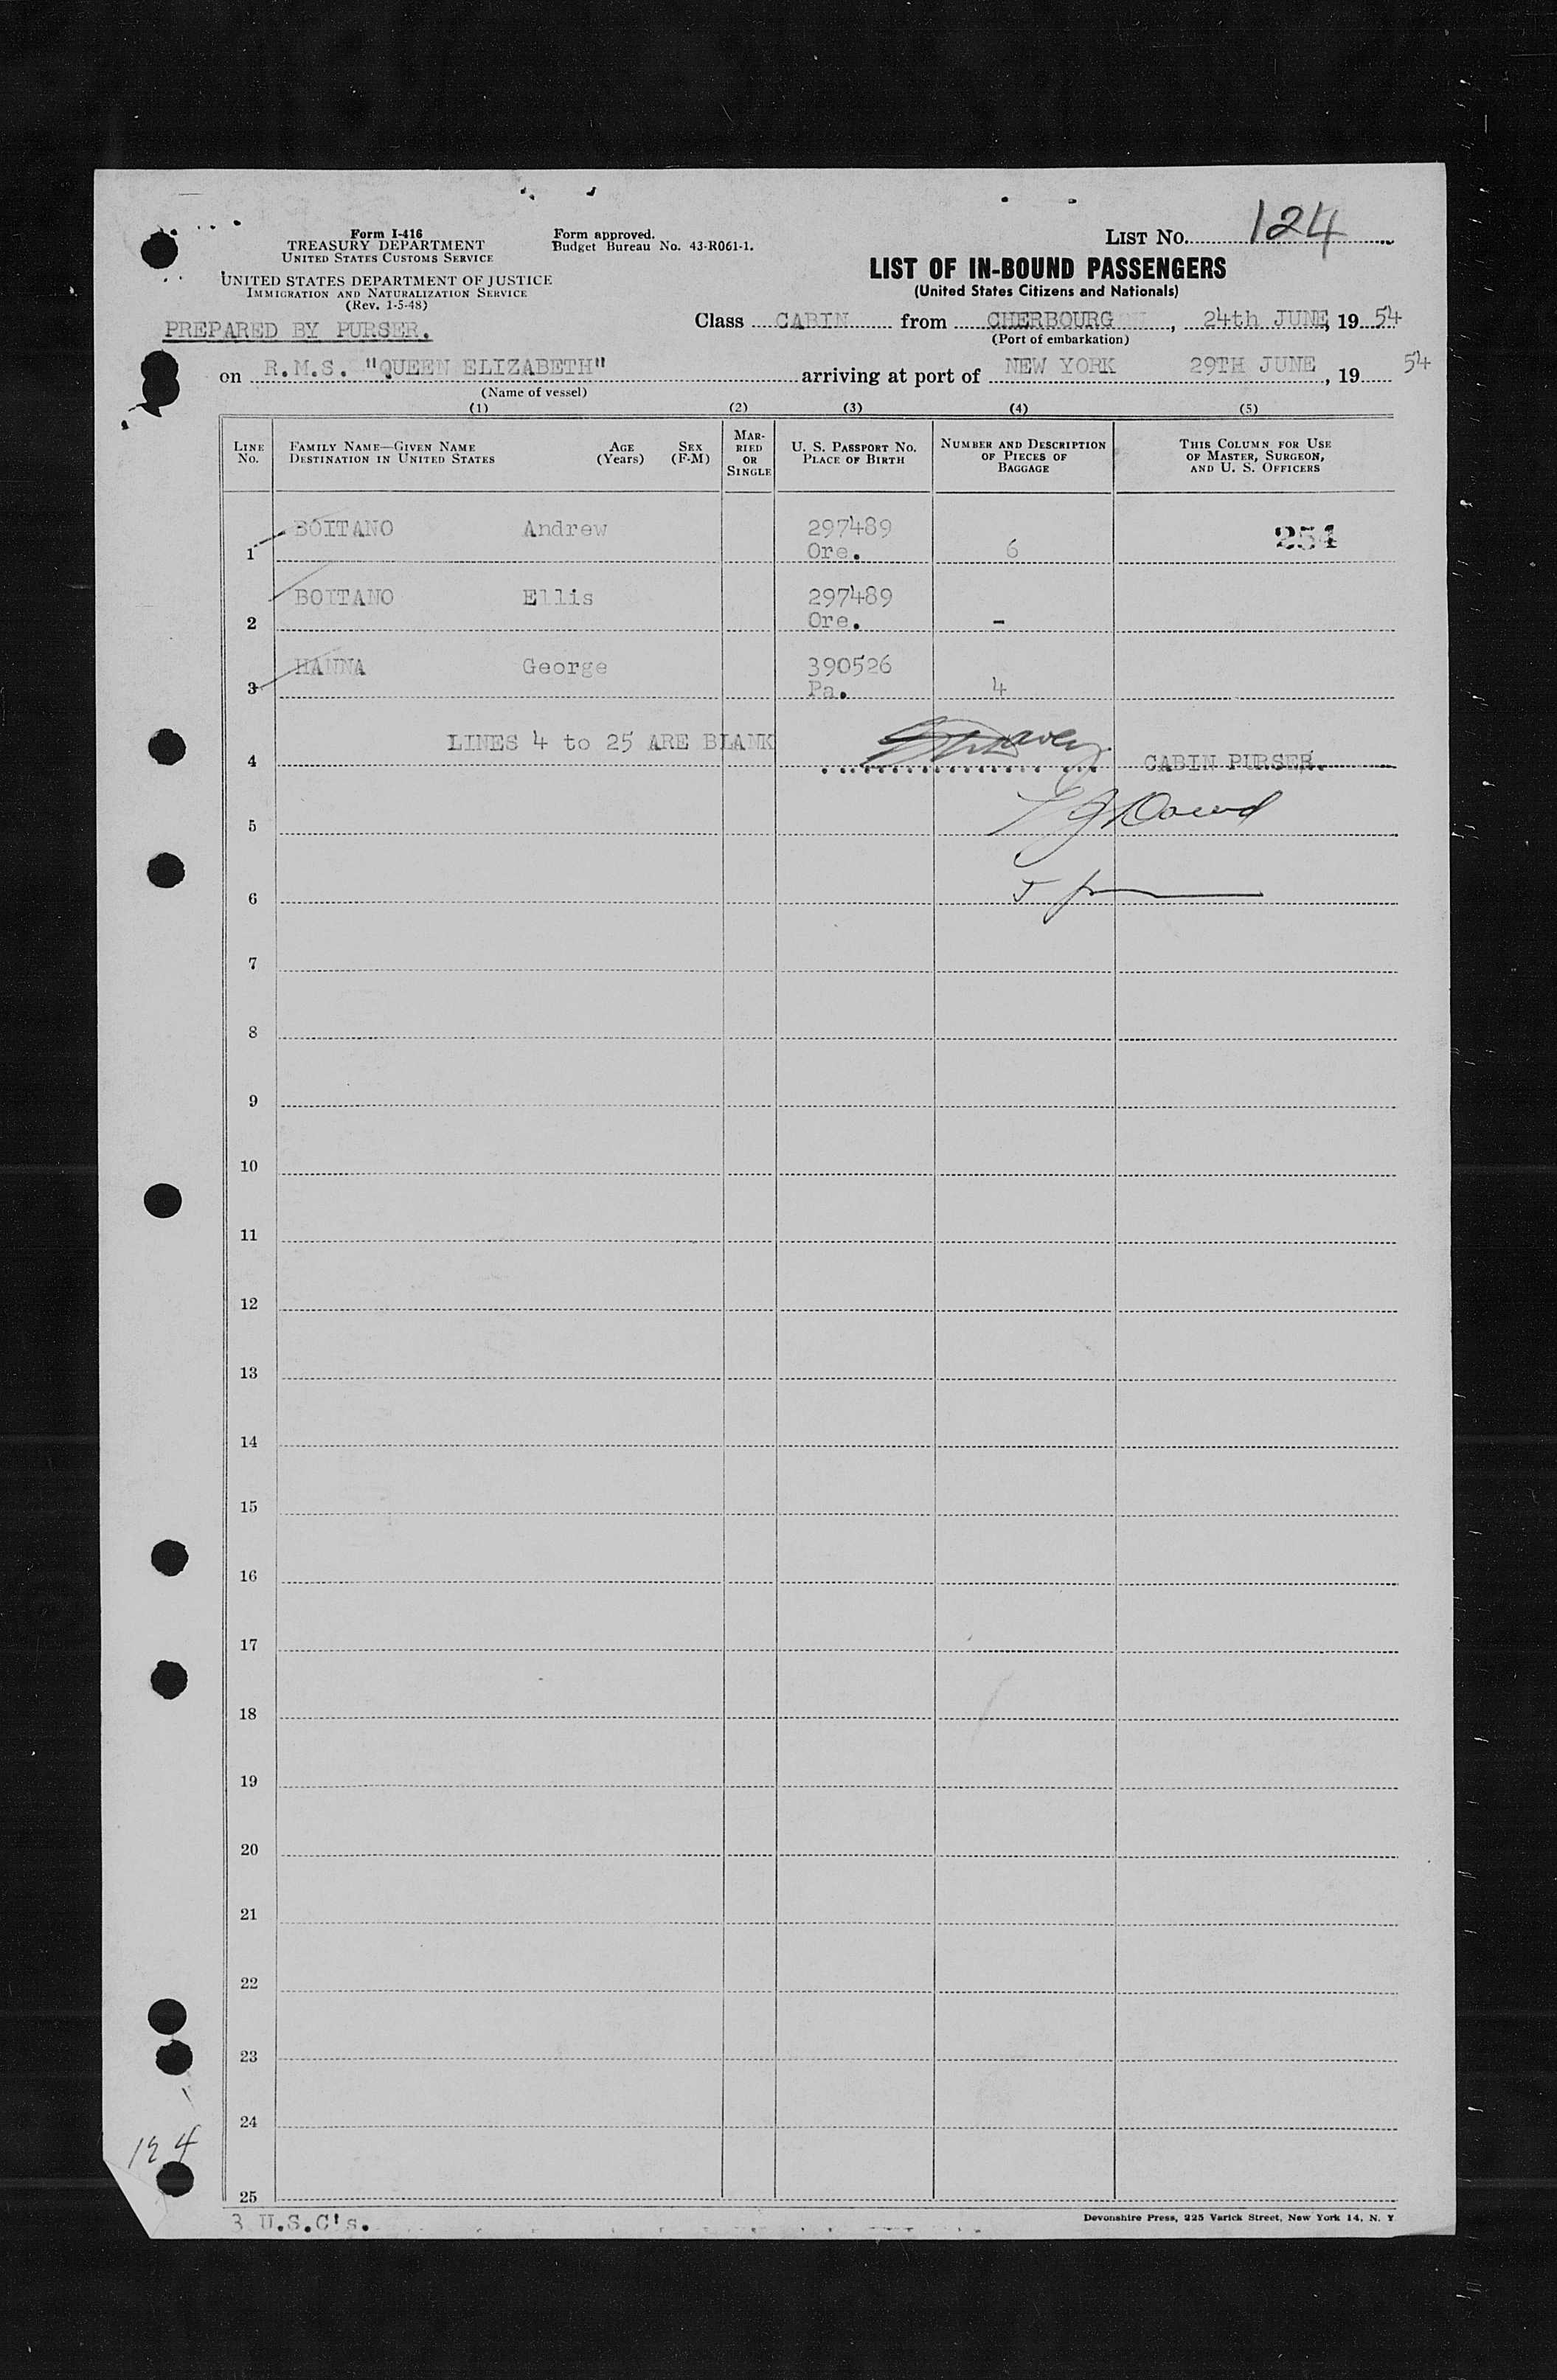 Form I-416
TREASURY DEPARTMENT
UNITED STATES CUSTOMS SERVICE
UNITED STATES DEPARTMENT OF JUSTICE
IMMIGRATION AND NATURALIZATION SERVICE
(Rev. 1-5-48)
PREPARED BY PURSER.
Form approved.
Budget Bureau No. 43-R061-1.
LIST NO. 124
LIST OF IN-BOUND PASSENGERS
(United States Citizens and Nationals)
Class CABIN from CHERBOURG, 24th JUNE, 19 54
(Port of embarkation)
on R.M.S. "QUEEN ELIZABETH" arriving at port of NEW YORK 29TH JUNE, 19 54
(Name of vessel)
(1) (2) (3) (4) (5)
LINE NO. FAMILY NAME—GIVEN NAME DESTINATION IN UNITED STATES AGE (Years) SEX (F-M) MARRIED OR SINGLE U. S. PASSPORT NO. PLACE OF BIRTH NUMBER AND DESCRIPTION OF PIECES OF BAGGAGE THIS COLUMN FOR USE OF MASTER, SURGEON, AND U. S. OFFICERS
BOITANO Andrew 297489 254
1 Ore. 6
BOITANO Ellis 297489
2 Ore. -
HANNA George 390526
3 Pa. 4
LINES 4 to 25 ARE BLANK
4 CABIN PURSER.
5
6
7
8
9
10
11
12
13
14
15
16
17
18
19
20
21
22
23
24
124
25
3 U.S.C's.
Devonshire Press, 225 Varick Street, New York 14, N. Y.